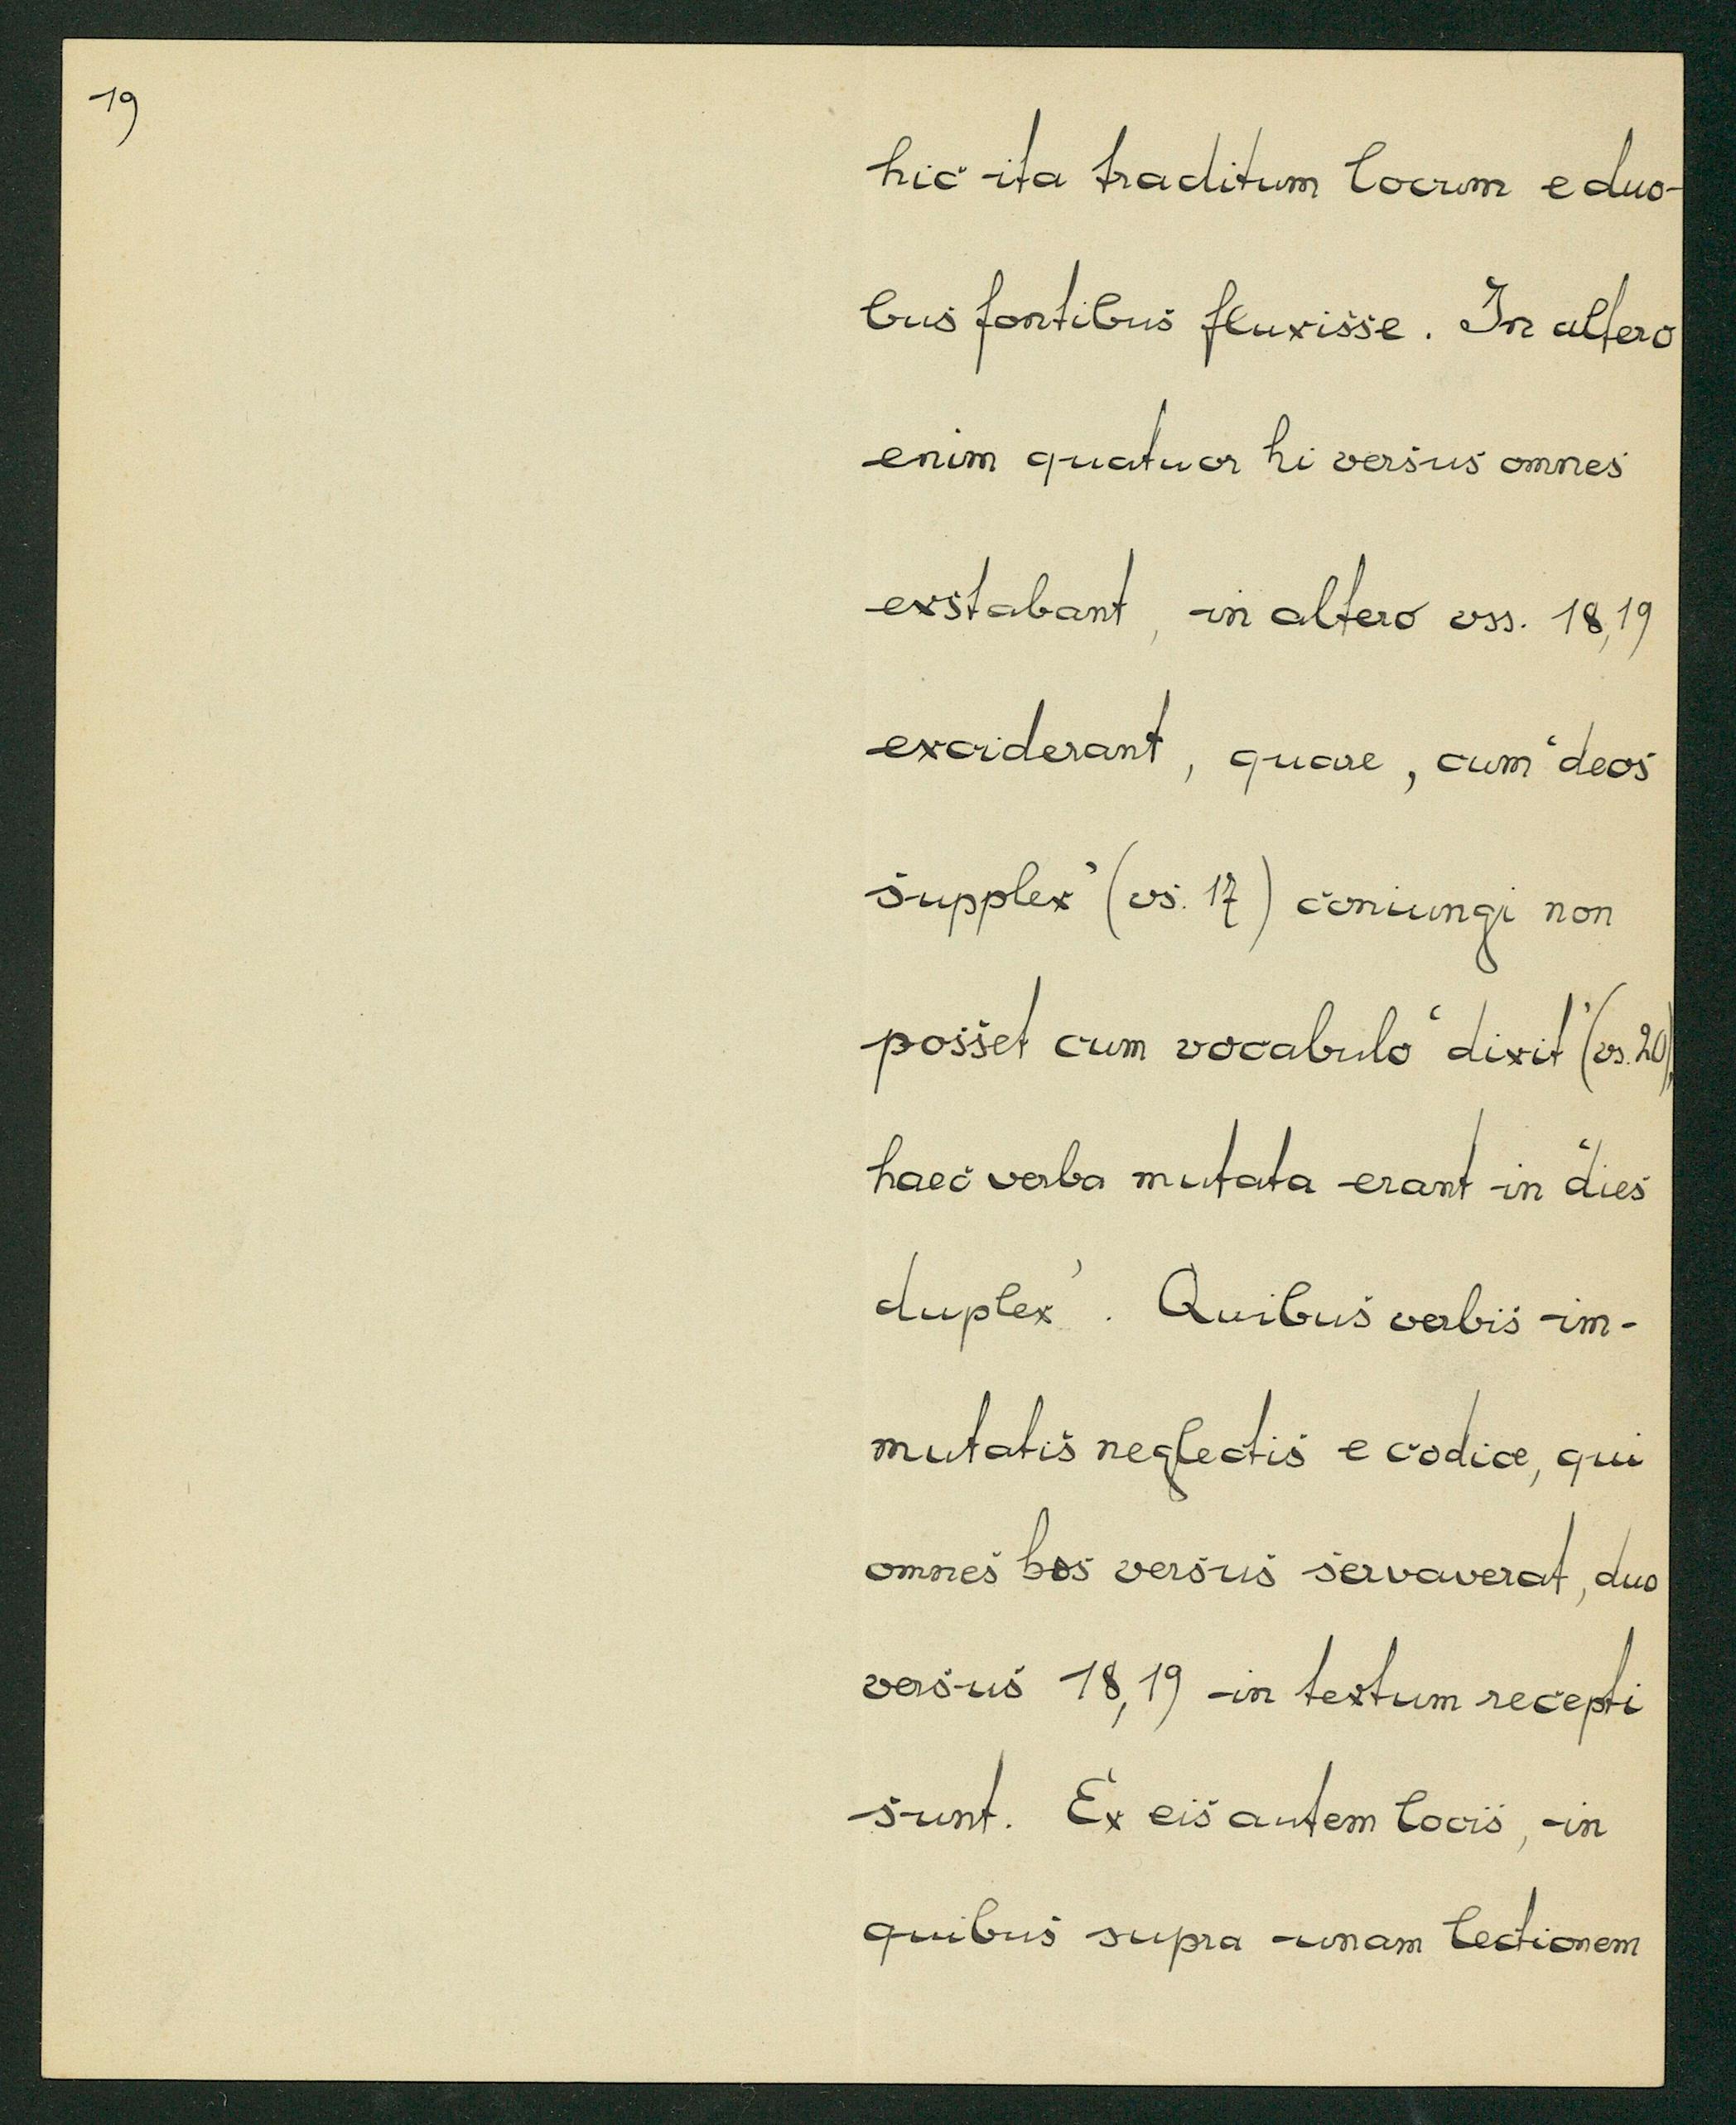 19
hic ita traditum locum e duo-
bus fontibus fluxisse. In altero
enim quatuor hi versus omnes
exstabant, in altero vss. 18,19
exciderant, quare, cum ‘deos
supplex’ (vs. 17) coniungi non
posset cum vocabulo ‘dixit’ (vs. 20),
haec verba mutata erant in ‘dies
duplex’. Quibus verbis im-
mutatis neglectis e codice, qui
omnes hos versus servaverat, duo
versus 18,19 in textum recepti
sunt. Ex eis autem locis, in
quibus supra unam lectionem